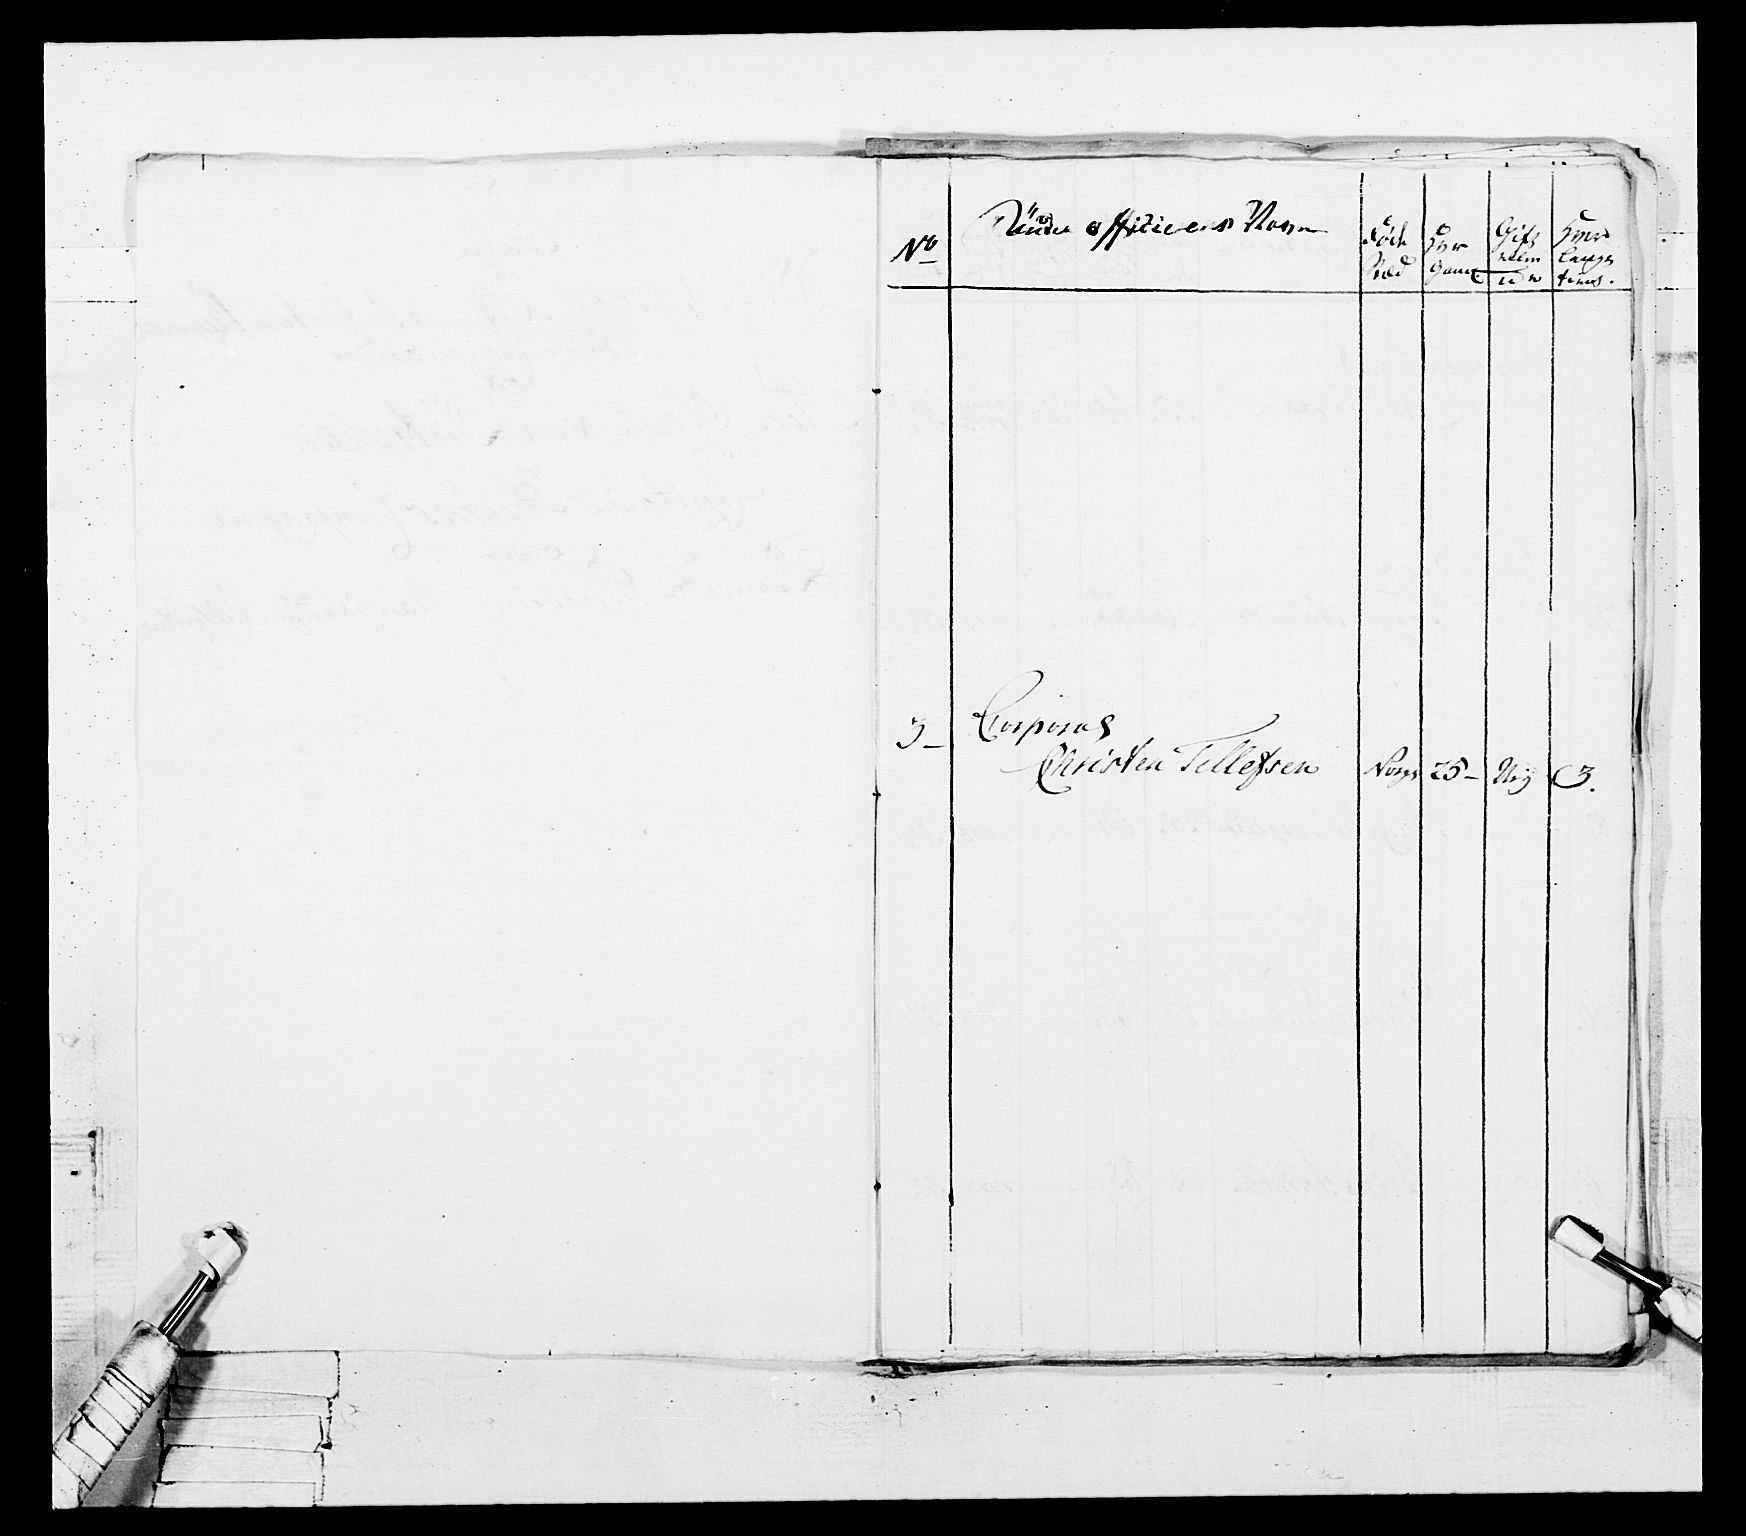 No
Under officierens Nafn
Föde
Stæd
Hvor
Gaml.
Gift
eller
Hvor
længe
tient.
3 –
Corporal
Christen Tellefsen
Norge
25 –
Ug
3.